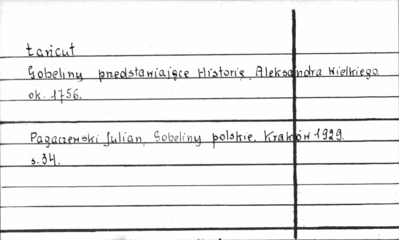 Łańcut
Gobeliny przedstawiające Historię Aleksandra Wielkiego
ok. 1756.
Pagaczewski Julian, Gobeliny polskie. Kraków 1929.
s. 34.